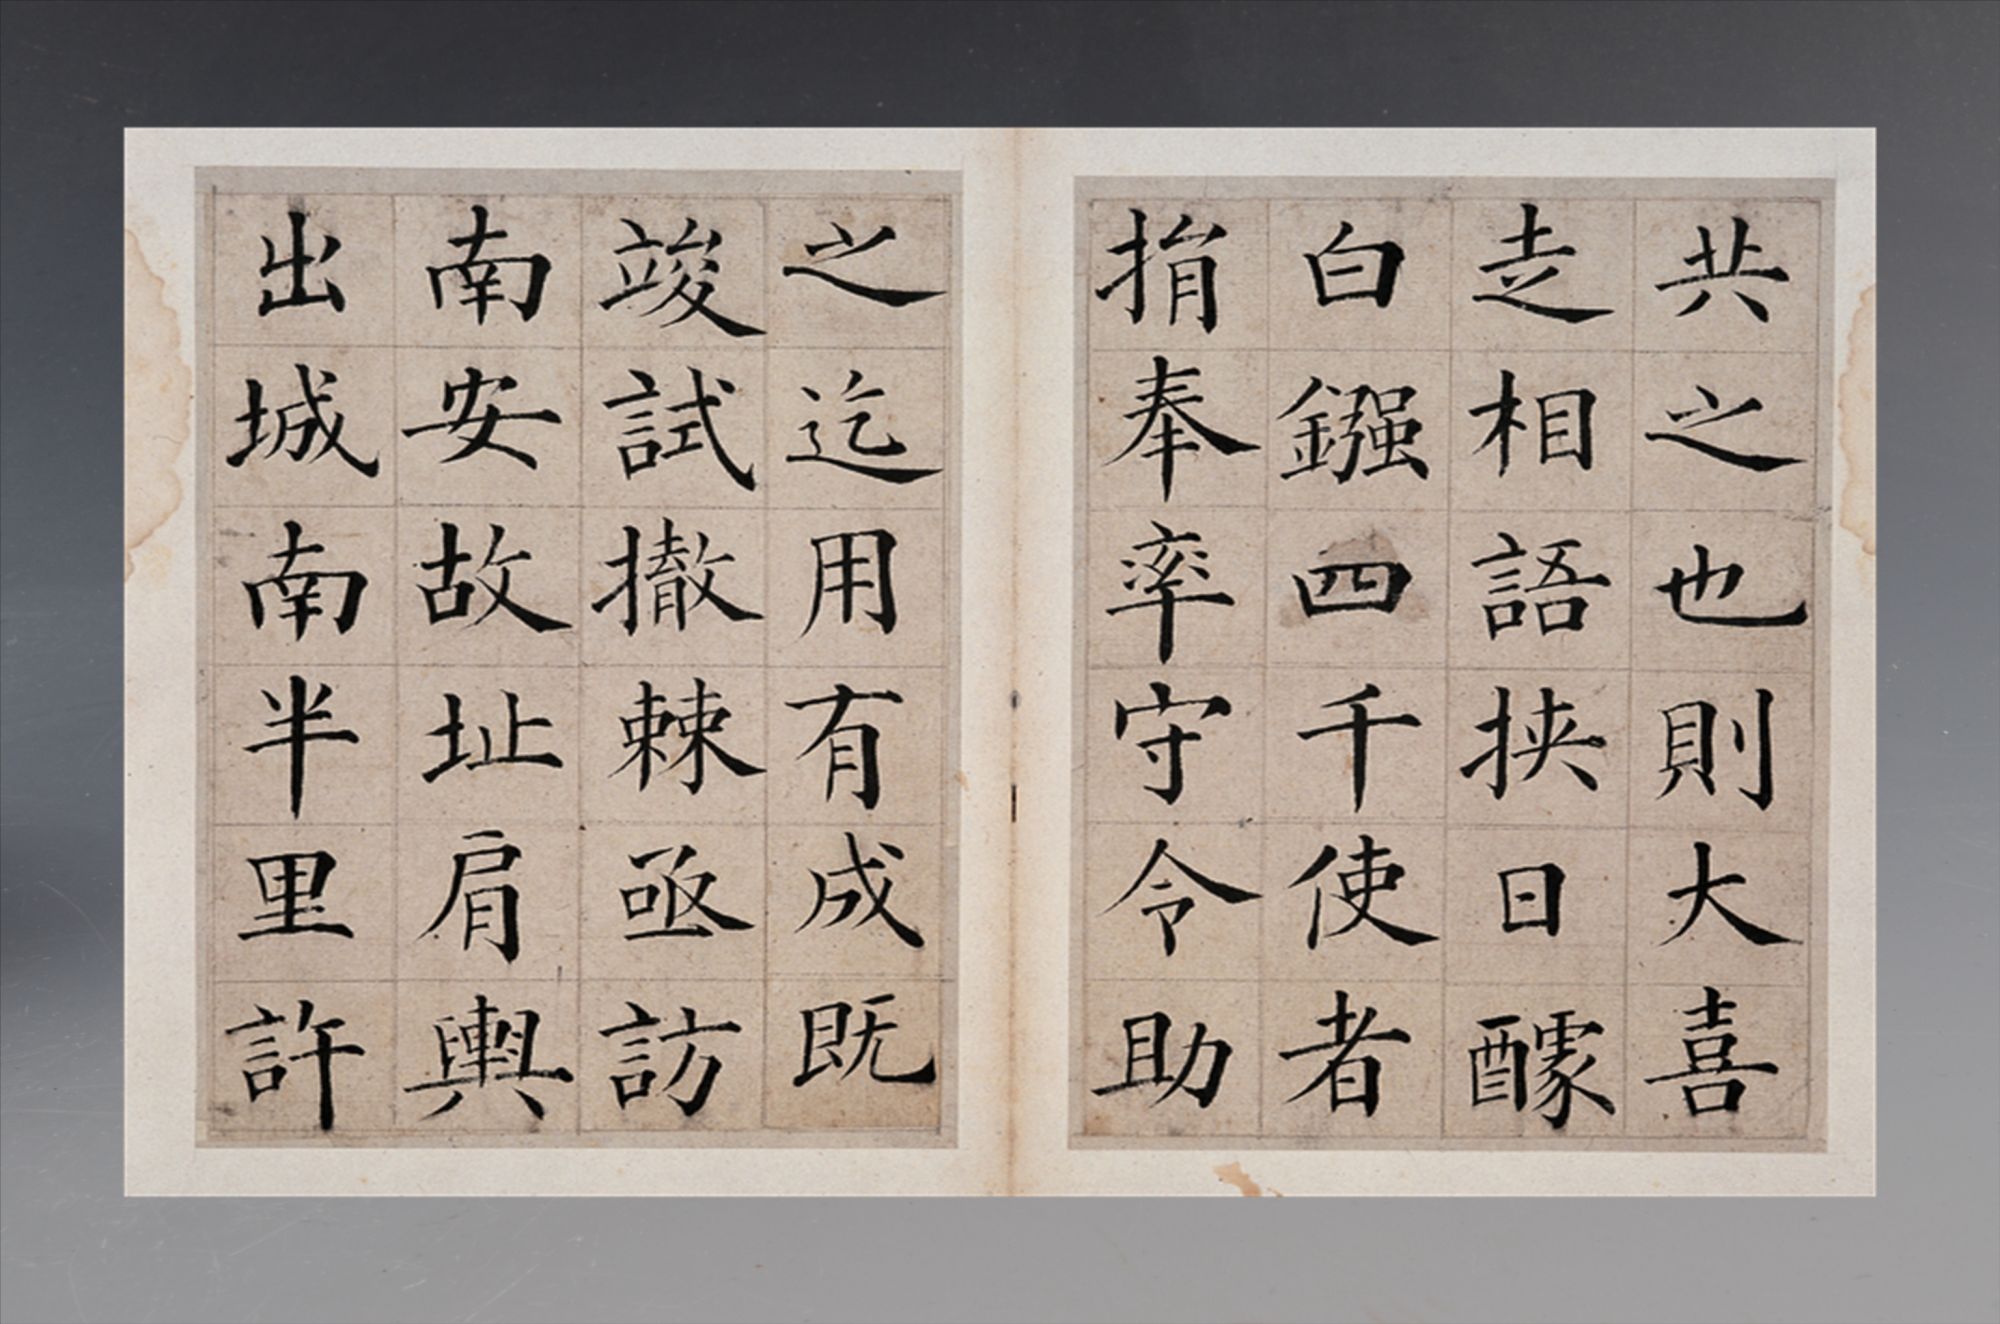 共之也則大喜
走相語挾日醵
白鏹四千使者
捐奉率守令助
之迄用有成既
竣試撤棘亟訪
南安故址肩輿
出城南半里許